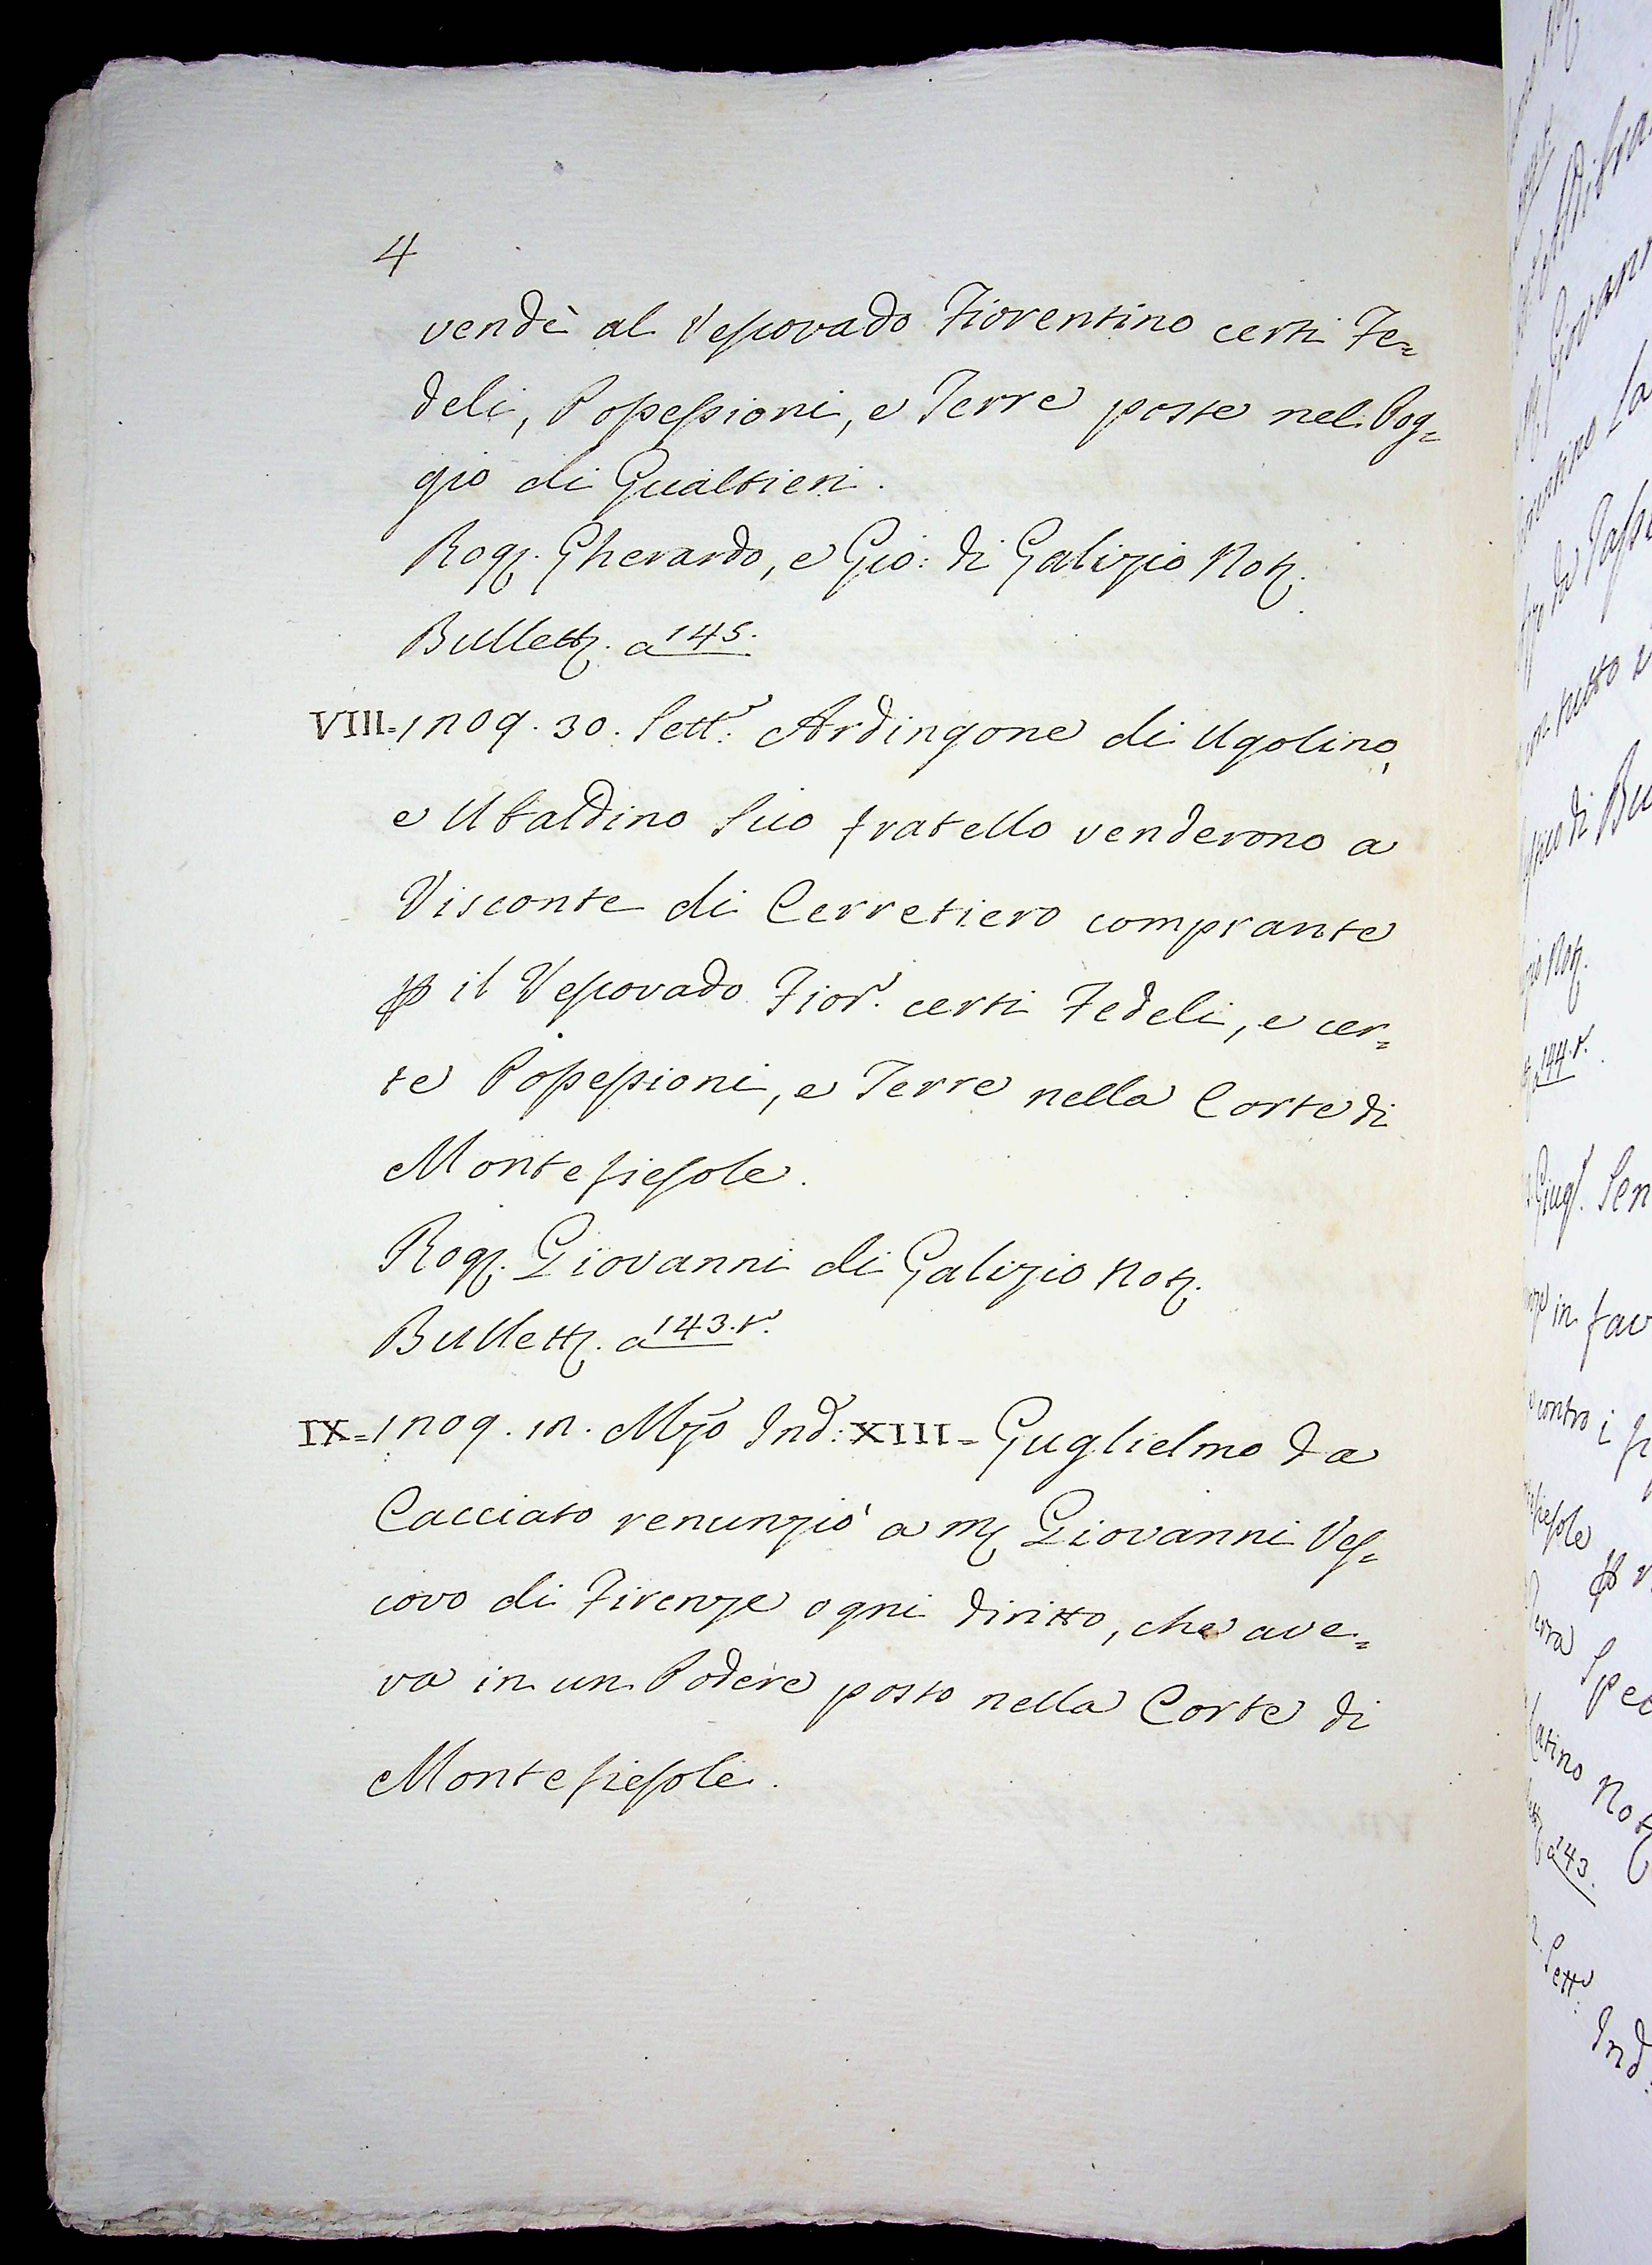 4
vendè al Vescovado Fiorentino certi Fe=
deli, Possessioni, e Terre poste nel Pog=
gio di Gualtieri.
Rog. Gherardo, e Gio: di Galizio Not.
Bullett. a 145.
VIII=1209. 30. Sett.e Ardingone di Ugolino,
e Ubaldino suo fratello venderono a
Visconte di Cerretiero comprante
p il Vescovado Fior.o certi Fedeli, e cer=
te Possessioni, e Terre nella Corte di
Montefiesole.
Rog. Giovanni di Galizio Not.
Bullett. a 143. t.
IX=1209. 12. Mzo Ind: XIII= Guglielmo da
Cacciato renunziò a m. Giovanni Ves=
covo di Firenze ogni diritto, che ave=
va in un Podere posto nella Corte di
Montefiesole.